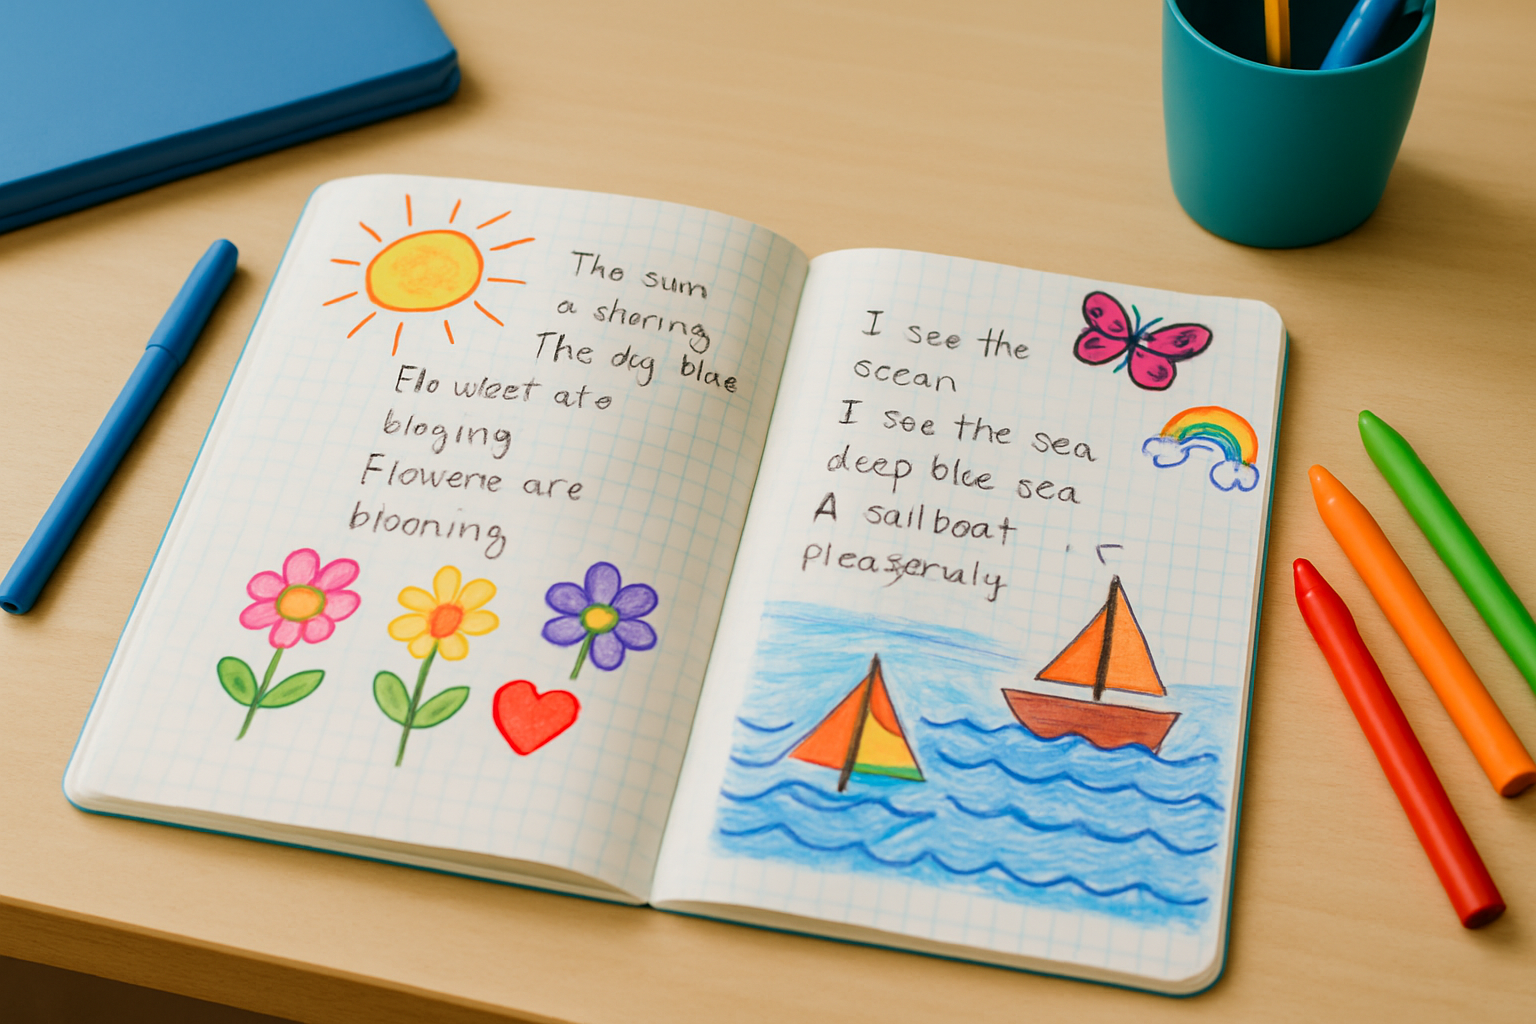 The sum
a shering
The dog blae
Flo wleet ate
bloging
Flowerne are
blooning
I see the
ocean
I soe the sea
deep blce sea
A sailboat